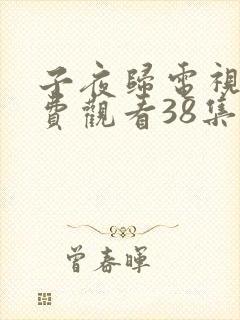 子夜歸電視
費觀看38集
曾春暉